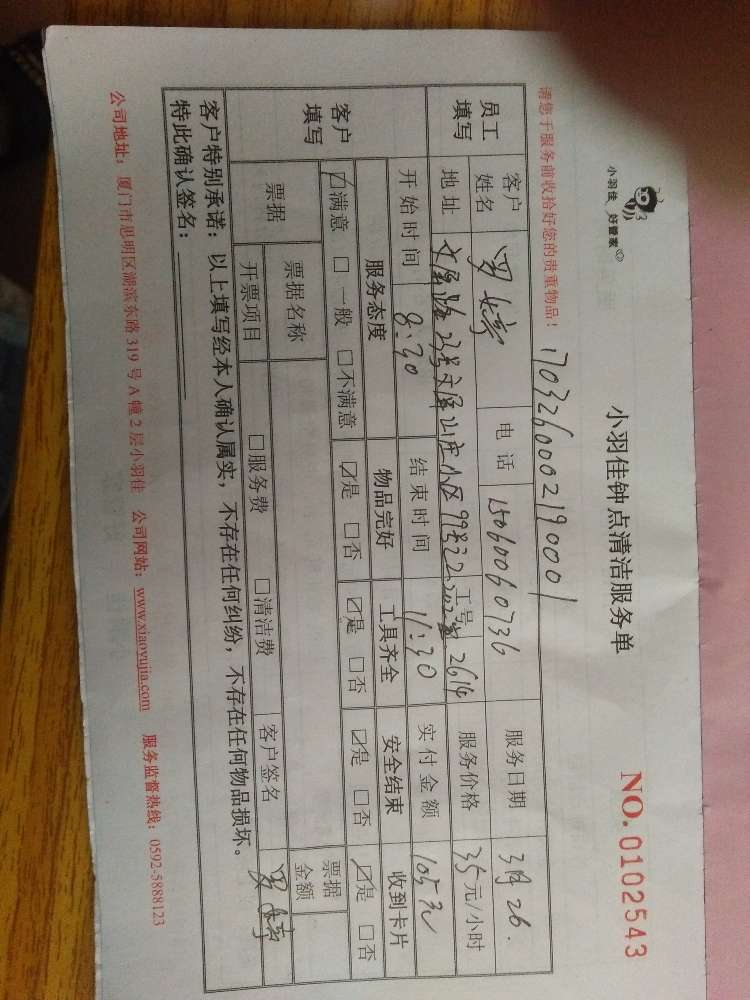 小羽佳 好管家
小羽佳钟点清洁服务单
NO. 0102543
请您于服务前收拾好您的贵重物品！
1703260002190001
员工填写 客户姓名 罗婷 电话 15060060736 服务日期 3月26.
地址 23号 山庄小区99号 工号 2614 服务价格 35元/小时
开始时间 8:30 结束时间 11:30 实付金额 105元
客户填写 服务态度 物品完好 工具齐全 安全结束 收到卡片
☑满意 □一般 □不满意 ☑是 □否 ☑是 □否 ☑是 □否 ☑是 □否
票据 票据名称 票据金额
开票项目 □服务费 □清洁费 客户签名 罗婷
客户特别承诺：以上填写经本人确认属实，不存在任何纠纷，不存在任何物品损坏。
特此确认签名：
公司地址：厦门市思明区湖滨东路319号A幢2层小羽佳 公司网站：www.xiaoyujia.com 服务监督热线：0592-5888123